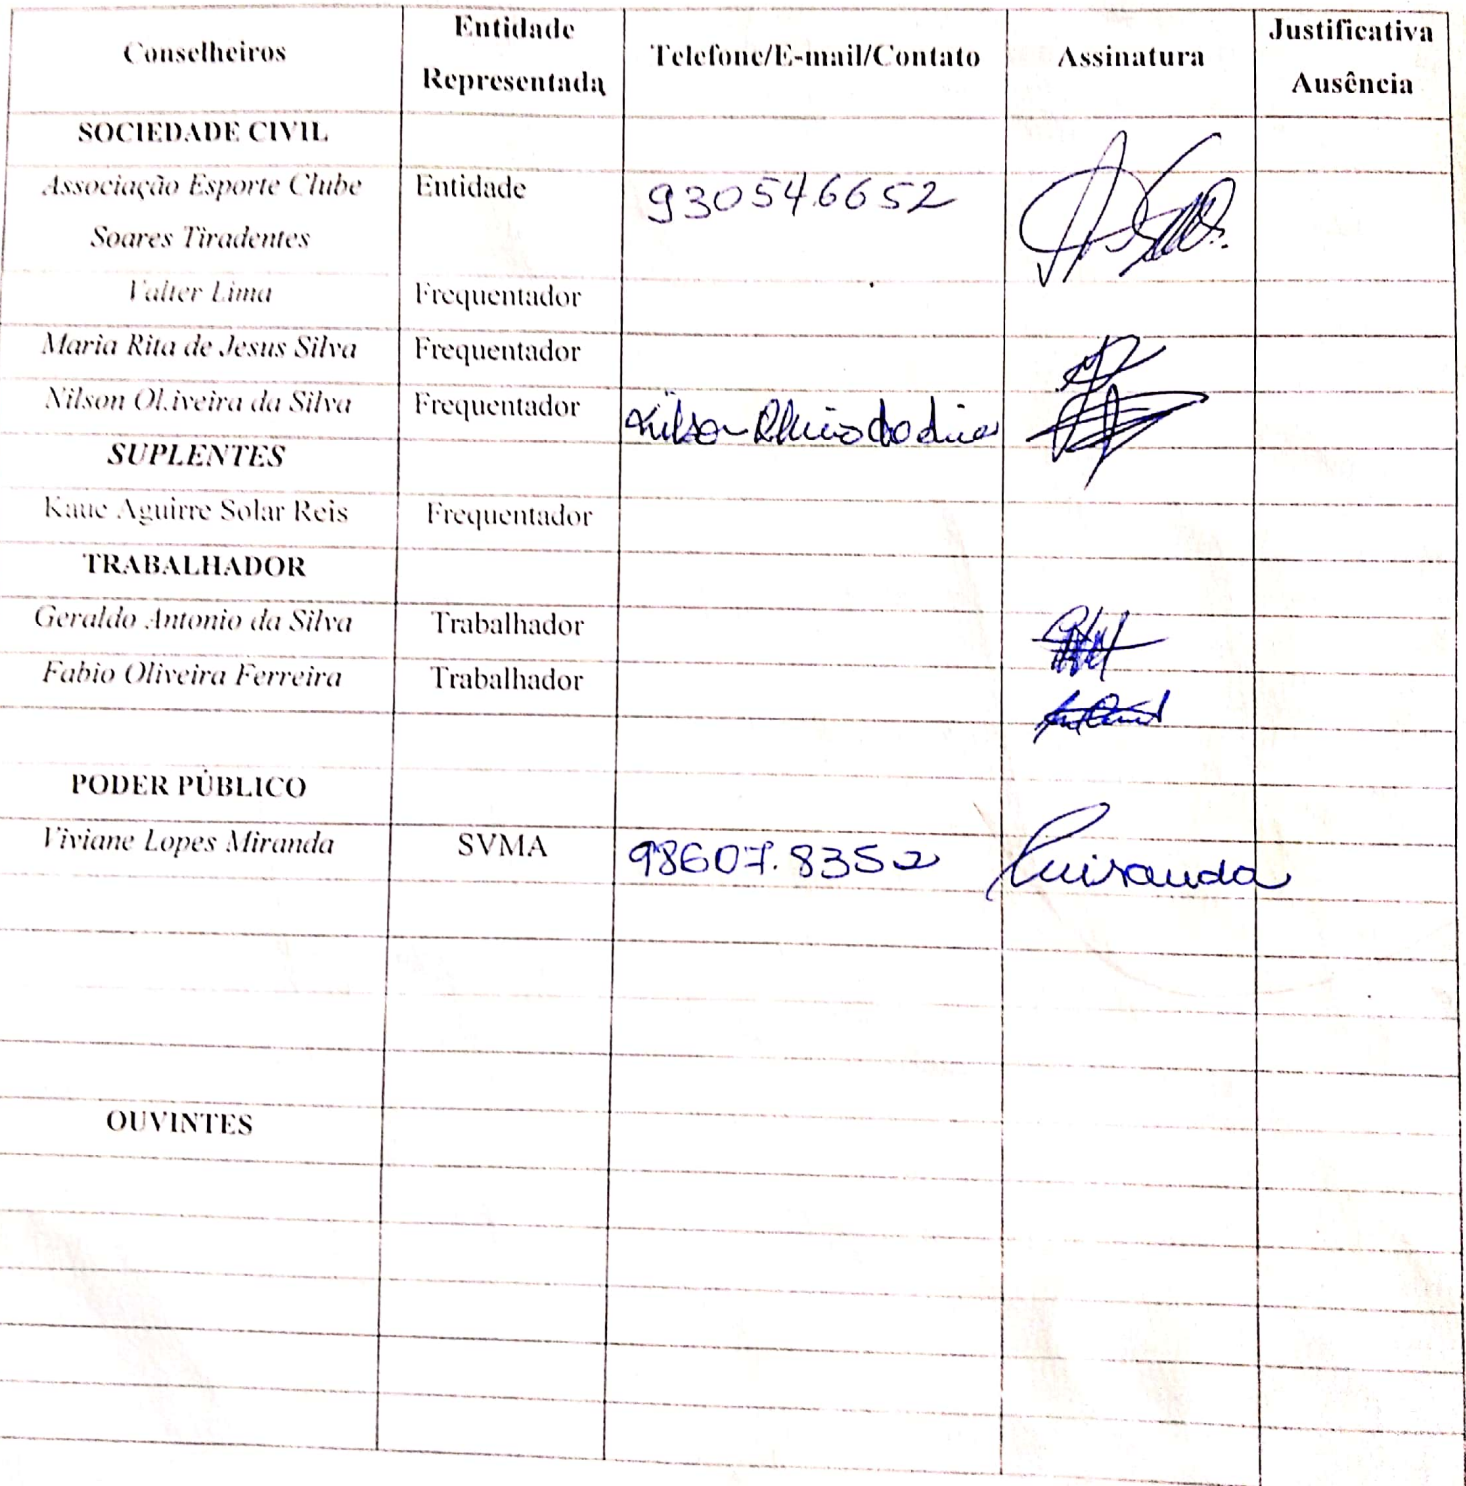 Conselheiros Entidade Representada Telefone/E-mail/Contato Assinatura Justificativa Ausência
SOCIEDADE CIVIL
Associação Esporte Clube Soares Tiradentes Entidade 930546652
Valter Lima Frequentador
Maria Rita de Jesus Silva Frequentador
Nilson OLiveira da Silva Frequentador
SUPLENTES
Kaue Aguirre Solar Reis Frequentador
TRABALHADOR
Geraldo Antonio da Silva Trabalhador
Fabio Oliveira Ferreira Trabalhador
PODER PÚBLICO
Viviane Lopes Miranda SVMA 98607.8352
OUVINTES